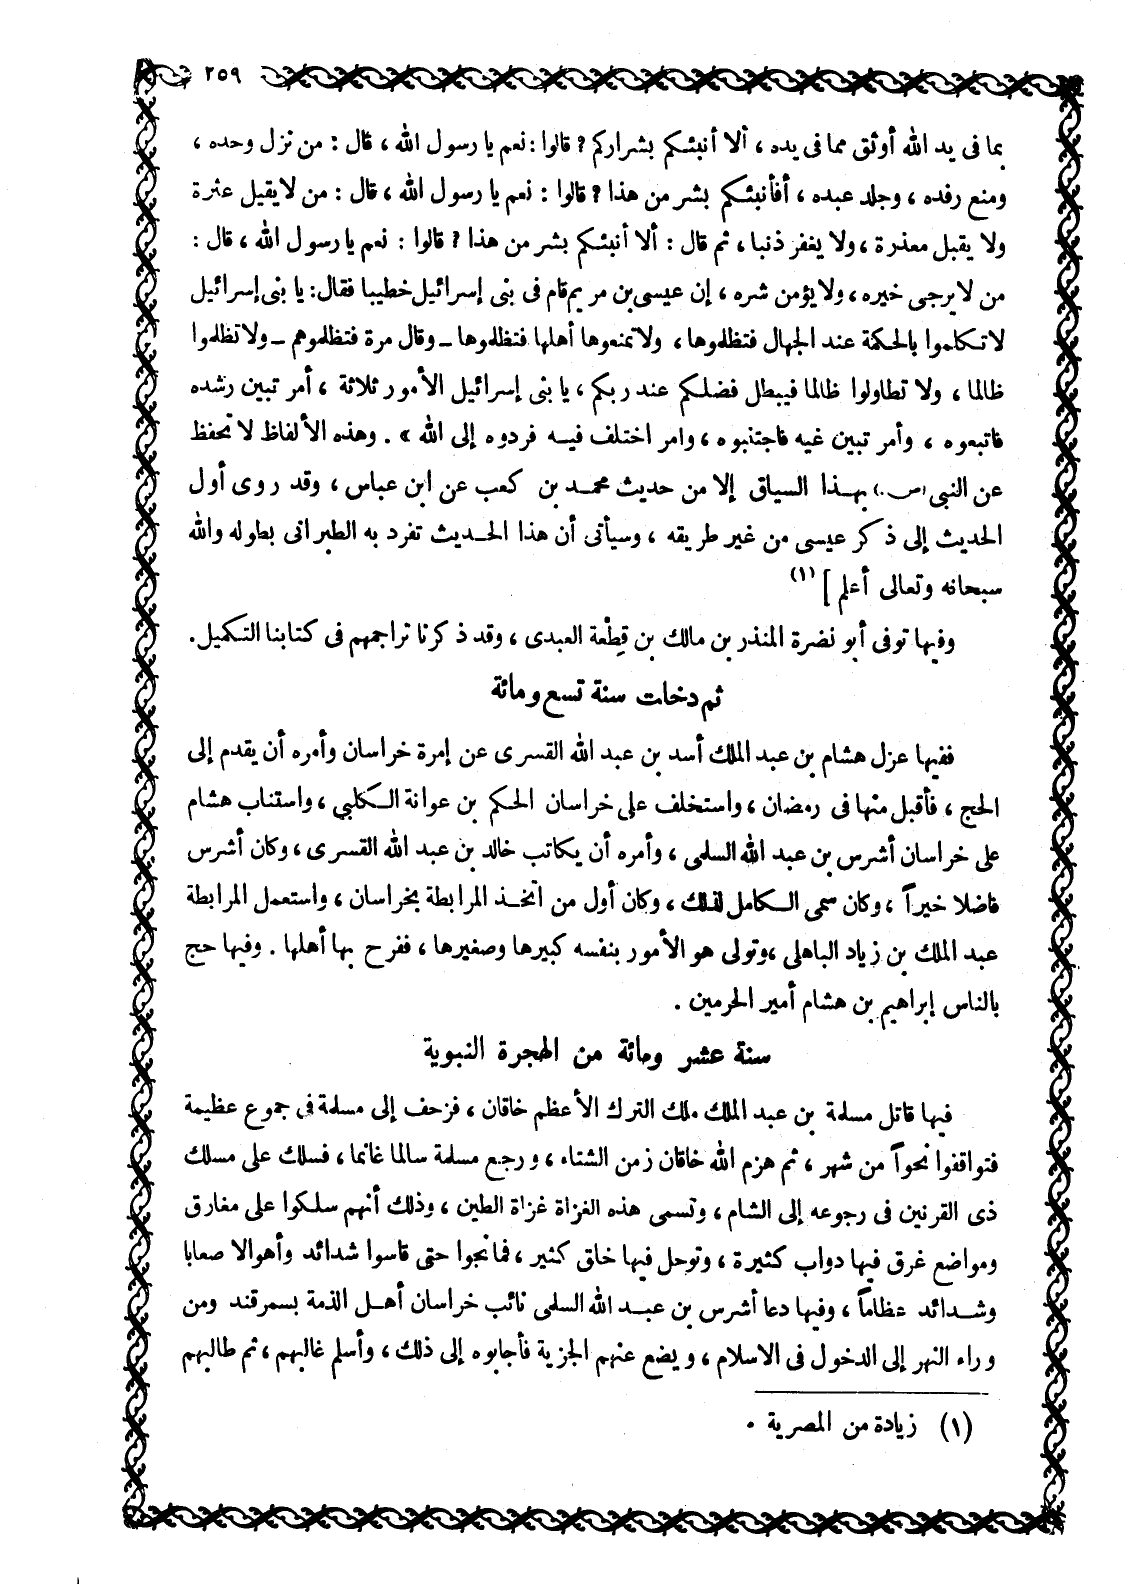 ٢٥٩
بما فى يد الله أوثق مما فى يده ، ألا أنبئكم بشراركم ? قالوا : نعم يا رسول الله ، قال : من نزل وحده ،
ومنع رفده ، وجلد عبده ، أفأنبئكم بشر من هذا ? قالوا : نعم يا رسول الله ، قال : من لا يقيل عثرة
ولا يقبل معذرة ، ولا يغفر ذنبا ، ثم قال : ألا أنبئكم بشر من هذا ? قالوا : نعم يا رسول الله ، قال :
من لا يرجى خيره ، ولا يؤمن شره ، إن عيسى بن مريم قام فى بنى إسرائيل خطيبا فقال : يا بنى إسرائيل
لا تكلموا بالحكمة عند الجهال فتظلموها ، ولا تمنعوها أهلها فتظلموها ــ وقال مرة فتظلموهم ــ ولا تظلموا
ظالما ، ولا تطاولوا ظالما فيبطل فضلكم عند ربكم ، يا بنى إسرائيل الأمور ثلاثة ، أمر تبين رشده
فاتبعوه ، وأمر تبين غيه فاجتنبوه ، وامر اختلف فيه فردوه إلى الله » . وهذه الألفاظ لا تحفظ
عن النبى (ص.) بهذا السياق إلا من حديث محمد بن كعب عن ابن عباس ، وقد روى أول
الحديث إلى ذكر عيسى من غير طريقه ، وسيأتى أن هذا الحديث تفرد به الطبرانى بطوله والله
سبحانه وتعالى أعلم ] (١)
وفيها توفى أبو نضرة المنذر بن مالك بن قِطْعة العبدى ، وقد ذكرنا تراجمهم فى كتابنا التكميل .
ثم دخلت سنة تسع ومائة
ففيها عزل هشام بن عبد الملك أسد بن عبد الله القسرى عن إمرة خراسان وأمره أن يقدم إلى
الحج ، فأقبل منها فى رمضان ، واستخلف على خراسان الحكم بن عوانة الكلبي ، واستناب هشام
على خراسان أشرس بن عبد الله السلمى ، وأمره أن يكاتب خالد بن عبد الله القسرى ، وكان أشرس
فاضلا خيراً ، وكان سمى الكامل لذلك ، وكان أول من اتخذ المرابطة بخراسان ، واستعمل المرابطة
عبد الملك بن زياد الباهلى ، وتولى هو الأمور بنفسه كبيرها وصغيرها ، ففرح بها أهلها . وفيها حج
بالناس إبراهيم بن هشام أمير الحرمين .
سنة عشر ومائة من الهجرة النبوية
فيها قاتل مسلمة بن عبد الملك ملك الترك الأعظم خاقان ، فزحف إلى مسلمة فى جموع عظيمة
فتواقفوا نحواً من شهر ، ثم هزم الله خاقان زمن الشتاء ، ورجع مسلمة سالما غانما ، فسلك على مسلك
ذى القرنين فى رجوعه إلى الشام ، وتسمى هذه الغزاة غزاة الطين ، وذلك أنهم سلكوا على مغارق
ومواضع غرق فيها دواب كثيرة ، وتوحل فيها خلق كثير ، فما نجوا حتى قاسوا شدائد وأهوالا صعابا
وشدائد عظاماً ، وفيها دعا أشرس بن عبد الله السلمى نائب خراسان أهل الذمة بسمرقند ومن
وراء النهر إلى الدخول فى الاسلام ، ويضع عنهم الجزية فأجابوه إلى ذلك ، وأسلم غالبهم ، ثم طالبهم
(١) زيادة من المصرية .